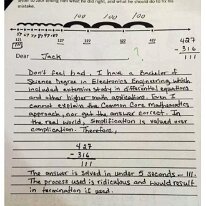 mistake.
100 100 100
127 227 327 427
427
- 316
111
Dear Jack
Don't feel bad. I have a Bachelor of
Science Degree in Electronics Engineering which
included extensive study in differential equations
and other higher math applications. Even I
cannot explain the Common Core mathematics
approach, nor get the answer correct. In
the real world, simplification is valued over
complication. Therefore,
427
- 316
111
The answer is solved in under 5 seconds — 111.
The process used is ridiculous and would result
in termination if used.